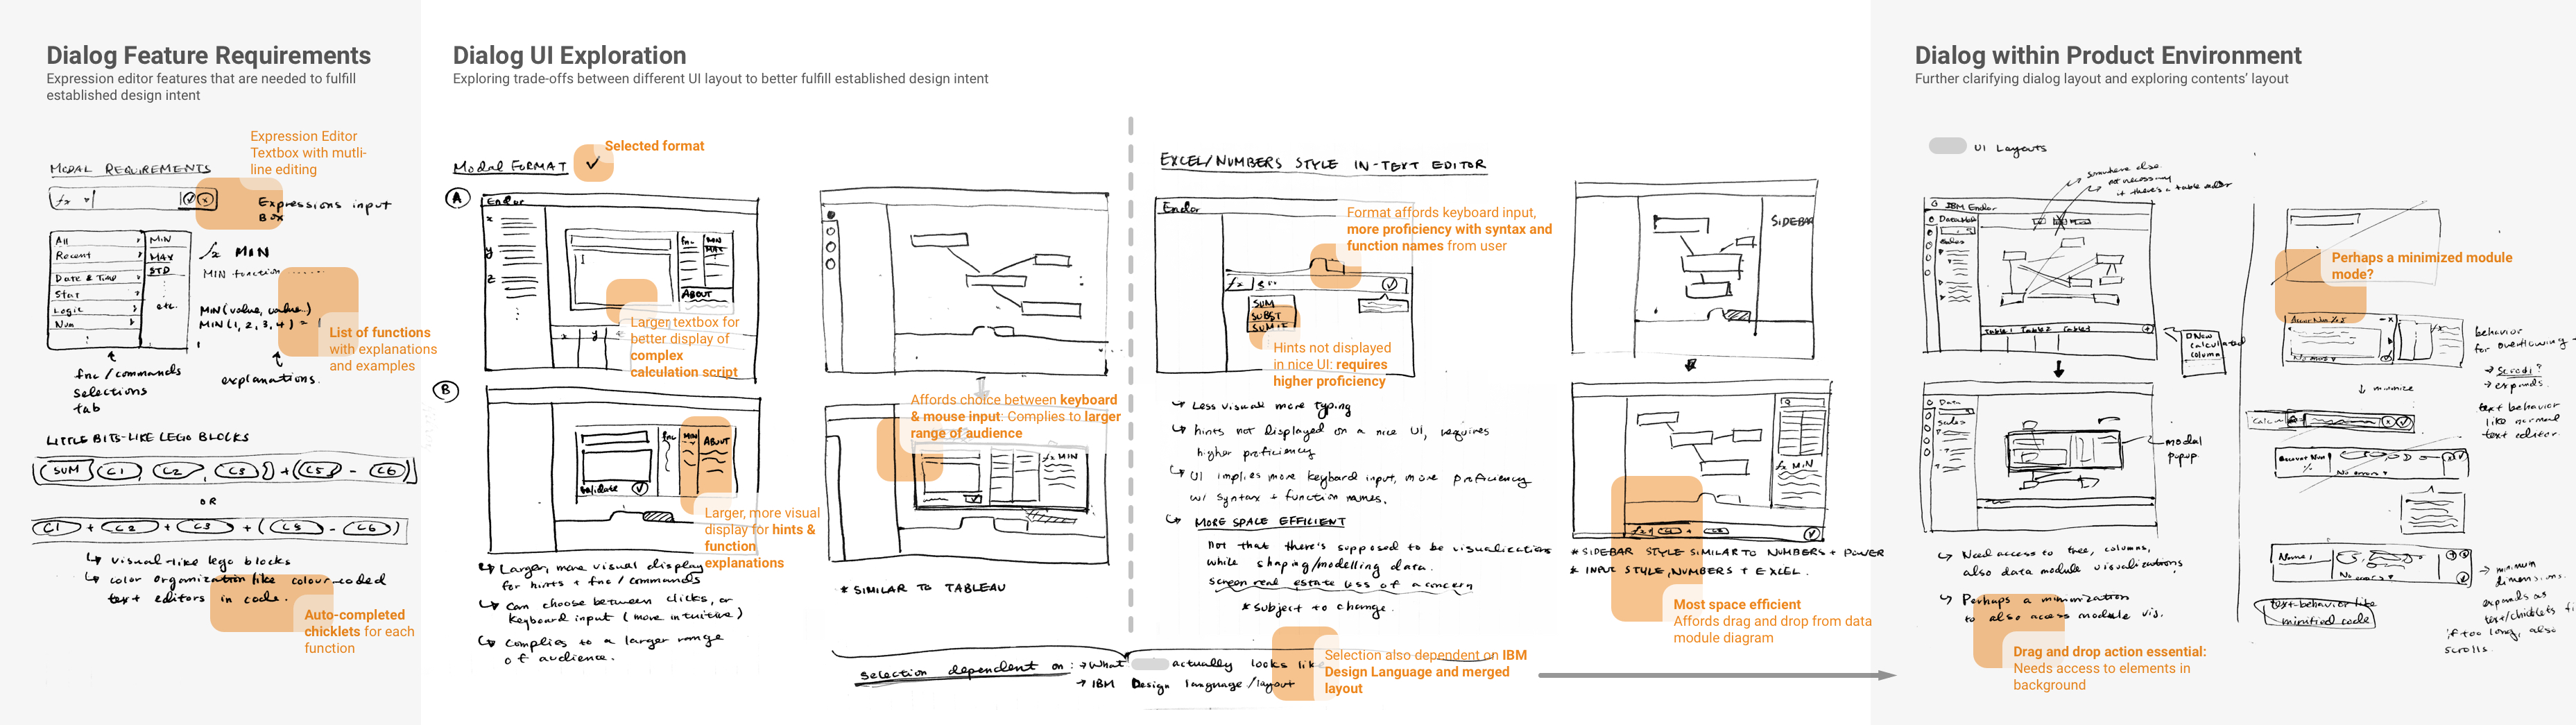 Dialog Feature Requirements
Expression editor features that are needed to fulfill
established design intent
Expression Editor
Textbox with mutli-
line editing
MODAL REQUIREMENTS
fx
Expressions input
Box
All
Recent
Date & Time
Stat
Logic
Num
MIN
MAX
STD
etc.
fx MIN
MIN function ......
MIN(value, value..)
MIN(1, 2, 3, 4) = 1
List of functions
with explanations
and examples
fnc/commands
selections
tab
explanations.
LITTLE BITS-LIKE LEGO BLOCKS
SUM C1, C2, C3 ) + (C5 - C6)
OR
C1 + C2 + C3 + (C5 - C6)
visual-like lego blocks
color organization like colour-coded
text editors in code.
Auto-completed
chicklets for each
function
Dialog UI Exploration
Exploring trade-offs between different UI layout to better fulfill established design intent
Modal FORMAT
Selected format
A
Endor
x
y
z
fnc
MIN
MAX
ABOUT
x
y
Larger textbox for
better display of
complex
calculation script
B
fnc
MIN
ABOUT
validate
Larger, more visual
display for hints &
function
explanations
Larger, more visual display
for hints + fnc/commands
can choose between clicks, or
keyboard input (more intuitive)
complies to a larger range
of audience.
Affords choice between keyboard
& mouse input: Complies to larger
range of audience
fx MIN
* SIMILAR TO TABLEAU
EXCEL/NUMBERS STYLE IN-TEXT EDITOR
Endor
Format affords keyboard input,
more proficiency with syntax and
function names from user
fx
SUM
SUBST
SUMIF
Hints not displayed
in nice UI: requires
higher proficiency
Less visual more typing
hints not displayed on a nice UI, requires
higher proficiency
UI implies more keyboard input, more proficiency
w/ syntax + function names.
MORE SPACE EFFICIENT
not that there's supposed to be visualizations
while shaping/modelling data.
screen real estate less of a concern
* subject to change.
SIDEBAR
fx MIN
* SIDEBAR STYLE SIMILAR TO NUMBERS + POWER
* INPUT STYLE, NUMBERS + EXCEL.
Most space efficient
Affords drag and drop from data
module diagram
selection dependent on: → What actually looks like
→ IBM Design language/layout
Selection also dependent on IBM
Design Language and merged
layout
Dialog within Product Environment
Further clarifying dialog layout and exploring contents' layout
UI Layouts
somewhere else
not necessary
if there's a table order
IBM Endor
Sales
Table 1 Table 2 Table 3
New
calculated
column
Data
Sales
modal
popup
Need access to tree, columns,
also data module visualizations
Perhaps a minimization
to also access module vis.
Drag and drop action essential:
Needs access to elements in
background
Perhaps a minimized module
mode?
behavior
for overflowing
→ scroll?
→ expands.
↓ minimize
text behavior
like normal
text editor.
No errors
Name,
No errors
→ minimum
dimensions.
expands as
text/chicklets
if too long, also
scrolls.
text behavior like
minified code